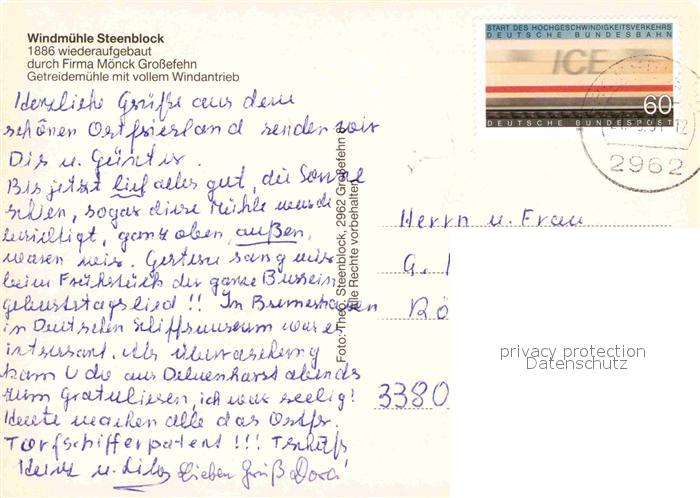 Windmühle Steenblock
1886 wiederaufgebaut
durch Firma Mönck Großefehn
Getreidemühle mit vollem Windantrieb
START DES HOCHGESCHWINDIGKEITSVERKEHRS
DEUTSCHE BUNDESBAHN
ICE
60
DEUTSCHE BUNDESPOST
2962
Herzliche Grüße aus dem
schönen Ostfriesland senden wir
Dir u. Günter.
Bis jetzt lief alles gut, die Sonne
schien, sogar diese Mühle wurde
besichtigt, ganz oben, außen,
waren wir. Gestern sang mir
beim Frühstück der ganze Bus ein
Geburtstagslied !! In Bremerhaven
im Deutschen Schiffsmuseum war es
interssant. Als Überraschung
kam Udo aus Delmenhorst abends
zum Gratulieren, ich war seelig!
Heute machen alle das Ostfr.
Torfschifferpatent !!! Tschüß
Heinz u. Lilo Lieben Gruß Dora!
Foto: Theo. Steenblock, 2962 Großefehn
Alle Rechte vorbehalten
Herrn u. Frau
G.
3380
privacy protection
Datenschutz